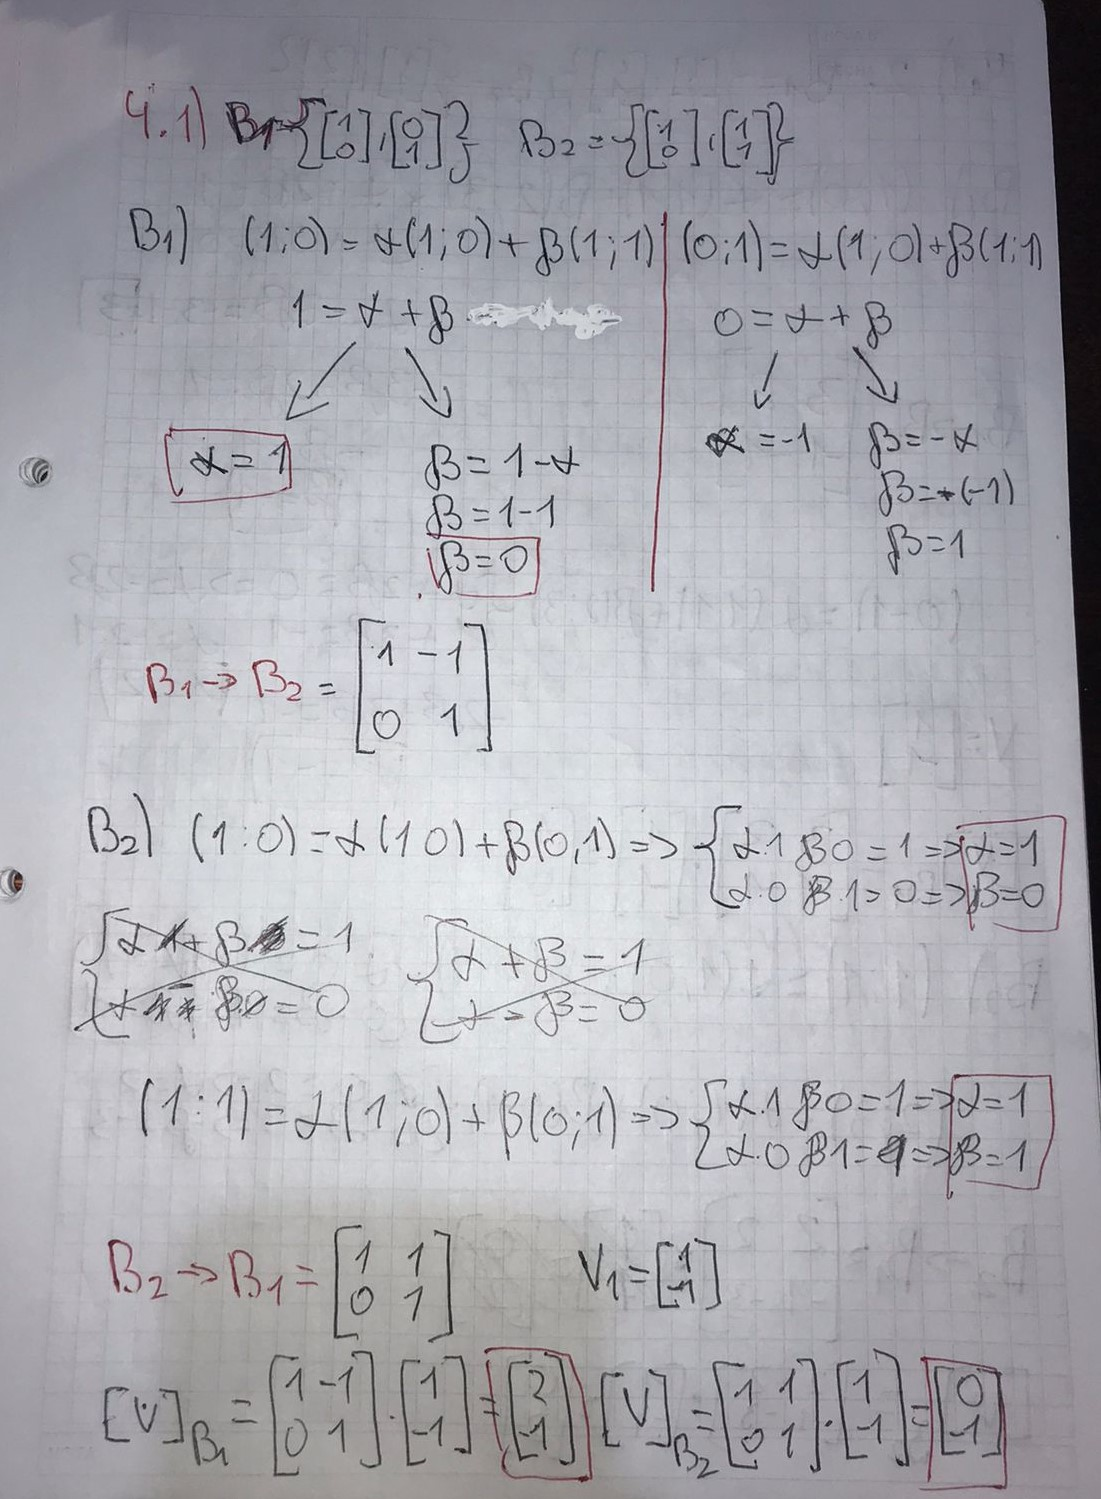 4.1) B1={[1 0],[0 1]} B2={[1 0],[1 1]}
B1) (1;0)=α(1;0)+β(1;1) | (0;1)=α(1;0)+β(1;1)
1=α+β 0=α+β
α=1 β=1-α α=-1 β=-α
β=1-1 β=-(-1)
β=0 β=1
B1→B2=[1 -1
0 1]
B2) (1:0)=α(1 0)+β(0,1)=>{α.1 β0=1=>α=1
α.0 β.1=0=>β=0
α+β=1
α-β=0
(1:1)=α(1;0)+β(0;1)=>{α.1 β0=1=>α=1
α.0 β1=1=>β=1
B2→B1=[1 1
0 1] V1=[1
-1]
[V]B1=[1 -1
0 1].[1
-1]=[2
-1] [V]B2=[1 1
0 1].[1
-1]=[0
-1]